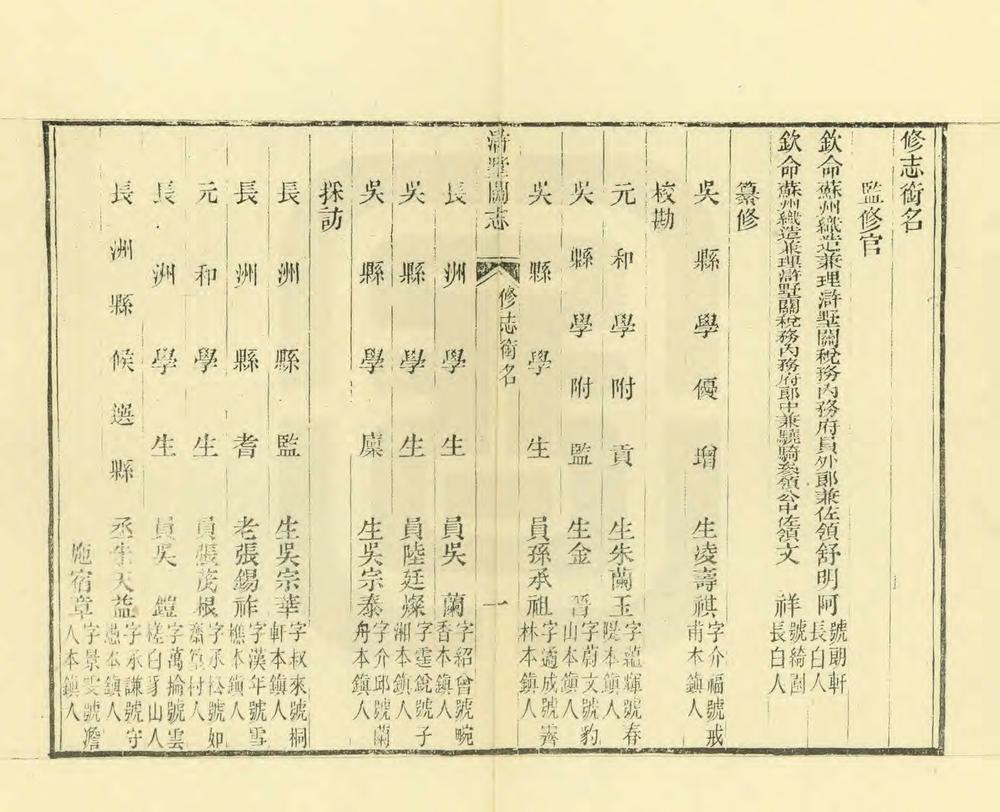 修志銜名
監修官
欽命蘇州織造兼理滸墅關稅務內務府員外郎兼佐領舒明阿號朗軒長白人
欽命蘇州織造兼理滸墅關稅務內務府郎中兼驍騎參領公中佐領文祥號綺園長白人
纂修
吳縣學優增生凌壽祺字介福號戒甫本鎮人
校勘
元和學附貢生朱蘭玉字蘊輝號春暖本鎮人
吳縣學附監生金晉字蔚文號豹山本鎮人
吳縣學生員孫承祖字遹成號霽林本鎮人
滸墅關志
修志銜名
一
長洲學生員吳蘭字紹曾號畹香本鎮人
吳縣學生員陸廷燦字霆銳號子湘本鎮人
吳縣學廩生吳宗泰字介邱號蘭舟本鎮人
採訪
長洲縣監生吳宗華字叔來號桐軒本鎮人
長洲縣耆老張錫祚字漢年號雪樵本鎮人
元和學生員張茂根字承號如齋村人
長洲學生員吳鎧字萬掄號雲槎白豸山人
長洲縣候選縣丞朱天益字承謙號守愚本鎮人
施宿章字景雯號澹人本鎮人